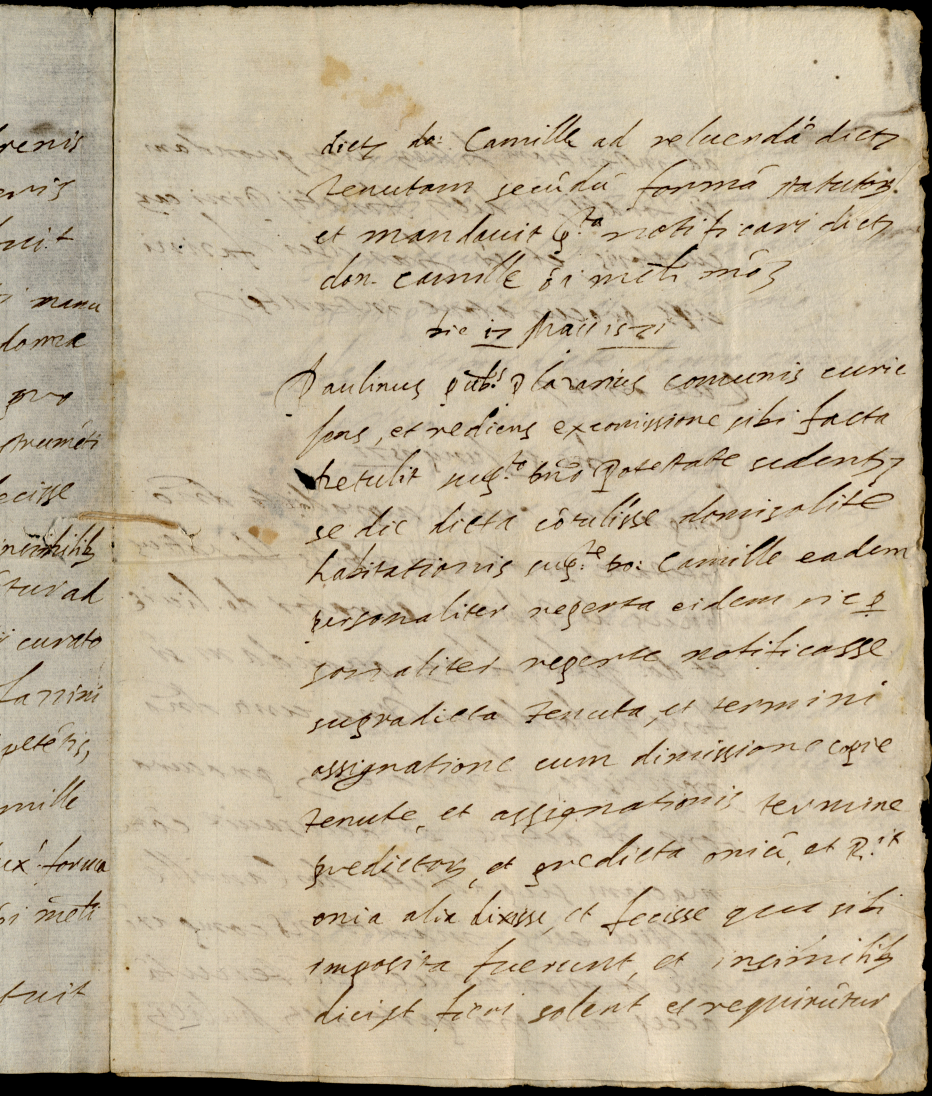 renis
eris
huit
manu
domꝫ
pro
strumēti
ecisse
insimilibꝫ
tur ad
curato
Lanini
petētis,
mille
ex.ª forma
oi meli
tuit
dictꝫ do: Camille ad reluendā dictꝫ
tenutam secūdū formā statutorꝫ
et mandavit p.ta notificari dictꝫ
don. camille oī meli mōꝫ
die 17 Maii 1571
Paulinus pub.s plazarius comunis curie
sens, et rediens ex comissione sibi facta
Retulit sup.to dno potestate sedentꝫ
se die dicta cōtulisse domi solite
habitationis sup.te do: Camille eadem
personaliter reperta eidem sic ꝑ
sonaliter reperte notificasse
supradicta tenuta, et termini
assignatione cum dimissione copie
tenute, et assignationis termine
predictorꝫ, et predicta oniā, et R.it
onia alia dixisse, et fecisse que sibi
imposita fuerunt, et insimilibꝫ
dici et fieri solent et requirūtur